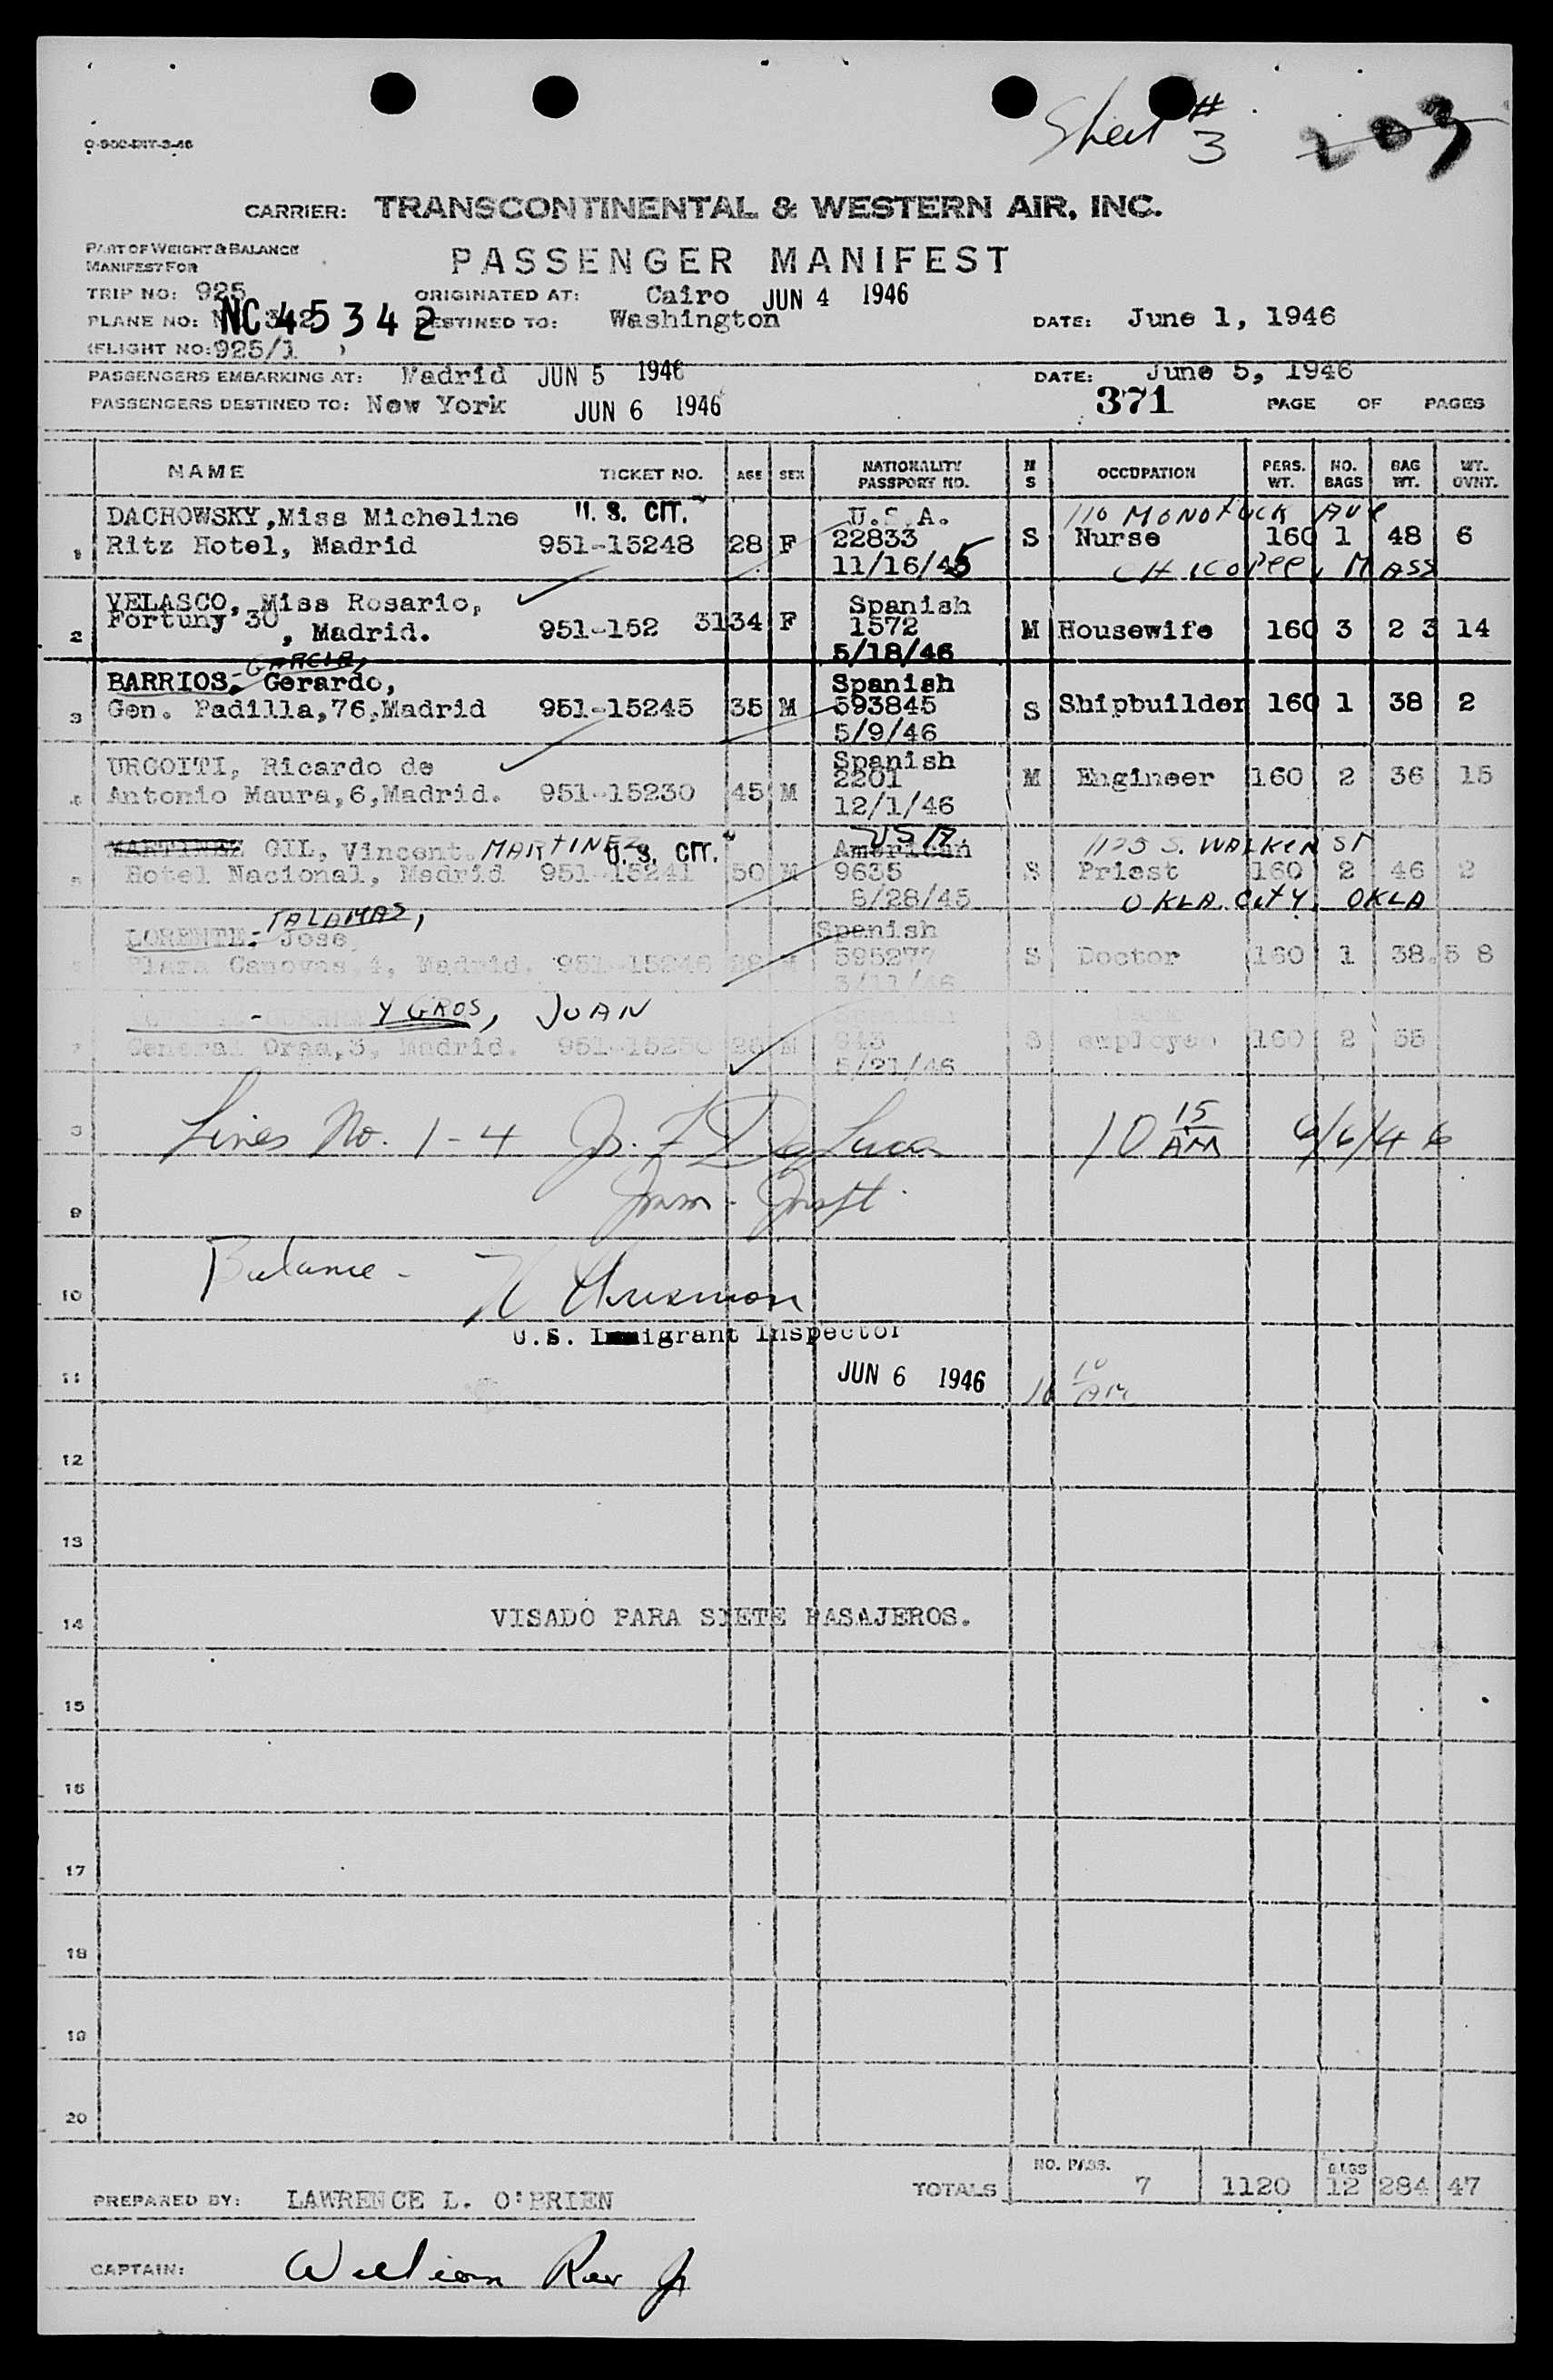 Sheet # 3
203
O-900-INT-3-46
CARRIER: TRANSCONTINENTAL & WESTERN AIR, INC.
PART OF WEIGHT & BALANCE
MANIFEST FOR
PASSENGER MANIFEST
TRIP NO: 925
ORIGINATED AT: Cairo JUN 4 1946
PLANE NO: NC 45342
DESTINED TO: Washington
DATE: June 1, 1946
(FLIGHT NO: 925/1 )
PASSENGERS EMBARKING AT: Madrid JUN 5 1946
DATE: June 5, 1946
PASSENGERS DESTINED TO: New York JUN 6 1946
371
PAGE OF PAGES
NAME TICKET NO. AGE SEX NATIONALITY PASSPORT NO. M S OCCUPATION PERS. WT. NO. BAGS BAG WT. WT. OVNT.
DACHOWSKY, Miss Micheline U. S. CIT. U.S.A. 110 MONOTUCK AVE
1 Ritz Hotel, Madrid 951-15248 28 F 22833 S Nurse 160 1 48 6
11/16/45 CHICOPEE, MASS
VELASCO, Miss Rosario, Spanish
2 Fortuny 30, Madrid. 951-152 31 34 F 1572 M Housewife 160 3 2 3 14
5/18/46
BARRIOS-GARCIA, Gerardo, Spanish
3 Gen. Padilla,76,Madrid 951-15245 35 M 593845 S Shipbuilder 160 1 38 2
5/9/46
URGOITI, Ricardo de Spanish
4 Antonio Maura,6,Madrid. 951-15230 45 M 2201 M Engineer 160 2 36 15
12/1/46
MARTINEZ GIL, Vincent MARTINEZ U. S. CIT. American USA 1125 S. WALKER ST
5 Hotel Nacional, Madrid 951-15241 50 M 9635 S Priest 160 2 46 2
8/28/45 OKLA. CITY, OKLA
LORENTE-TALAMAS, Jose Spanish
Plaza Canovas,4, Madrid. 951-15246 28 M 595277 S Doctor 160 1 38.5 8
3/11/46
Y GROS, JUAN
7 General Oraa,3, Madrid. 951-15250 26 M 943 S employee 160 2 35
5/21/46
8 Lines No. 1-4 Jr. F DeLuca 10 15 AM 6/6/46
9 Imm. Inspt.
10 Balance -
U.S. Immigrant Inspector
11 JUN 6 1946 10 10 AM
12
13
14 VISADO PARA SIETE PASAJEROS.
15
16
17
18
19
20
TOTALS NO. PASS. 7 1120 BAGS 12 284 47
PREPARED BY: LAWRENCE L. O'BRIEN
CAPTAIN: William Rev Jr